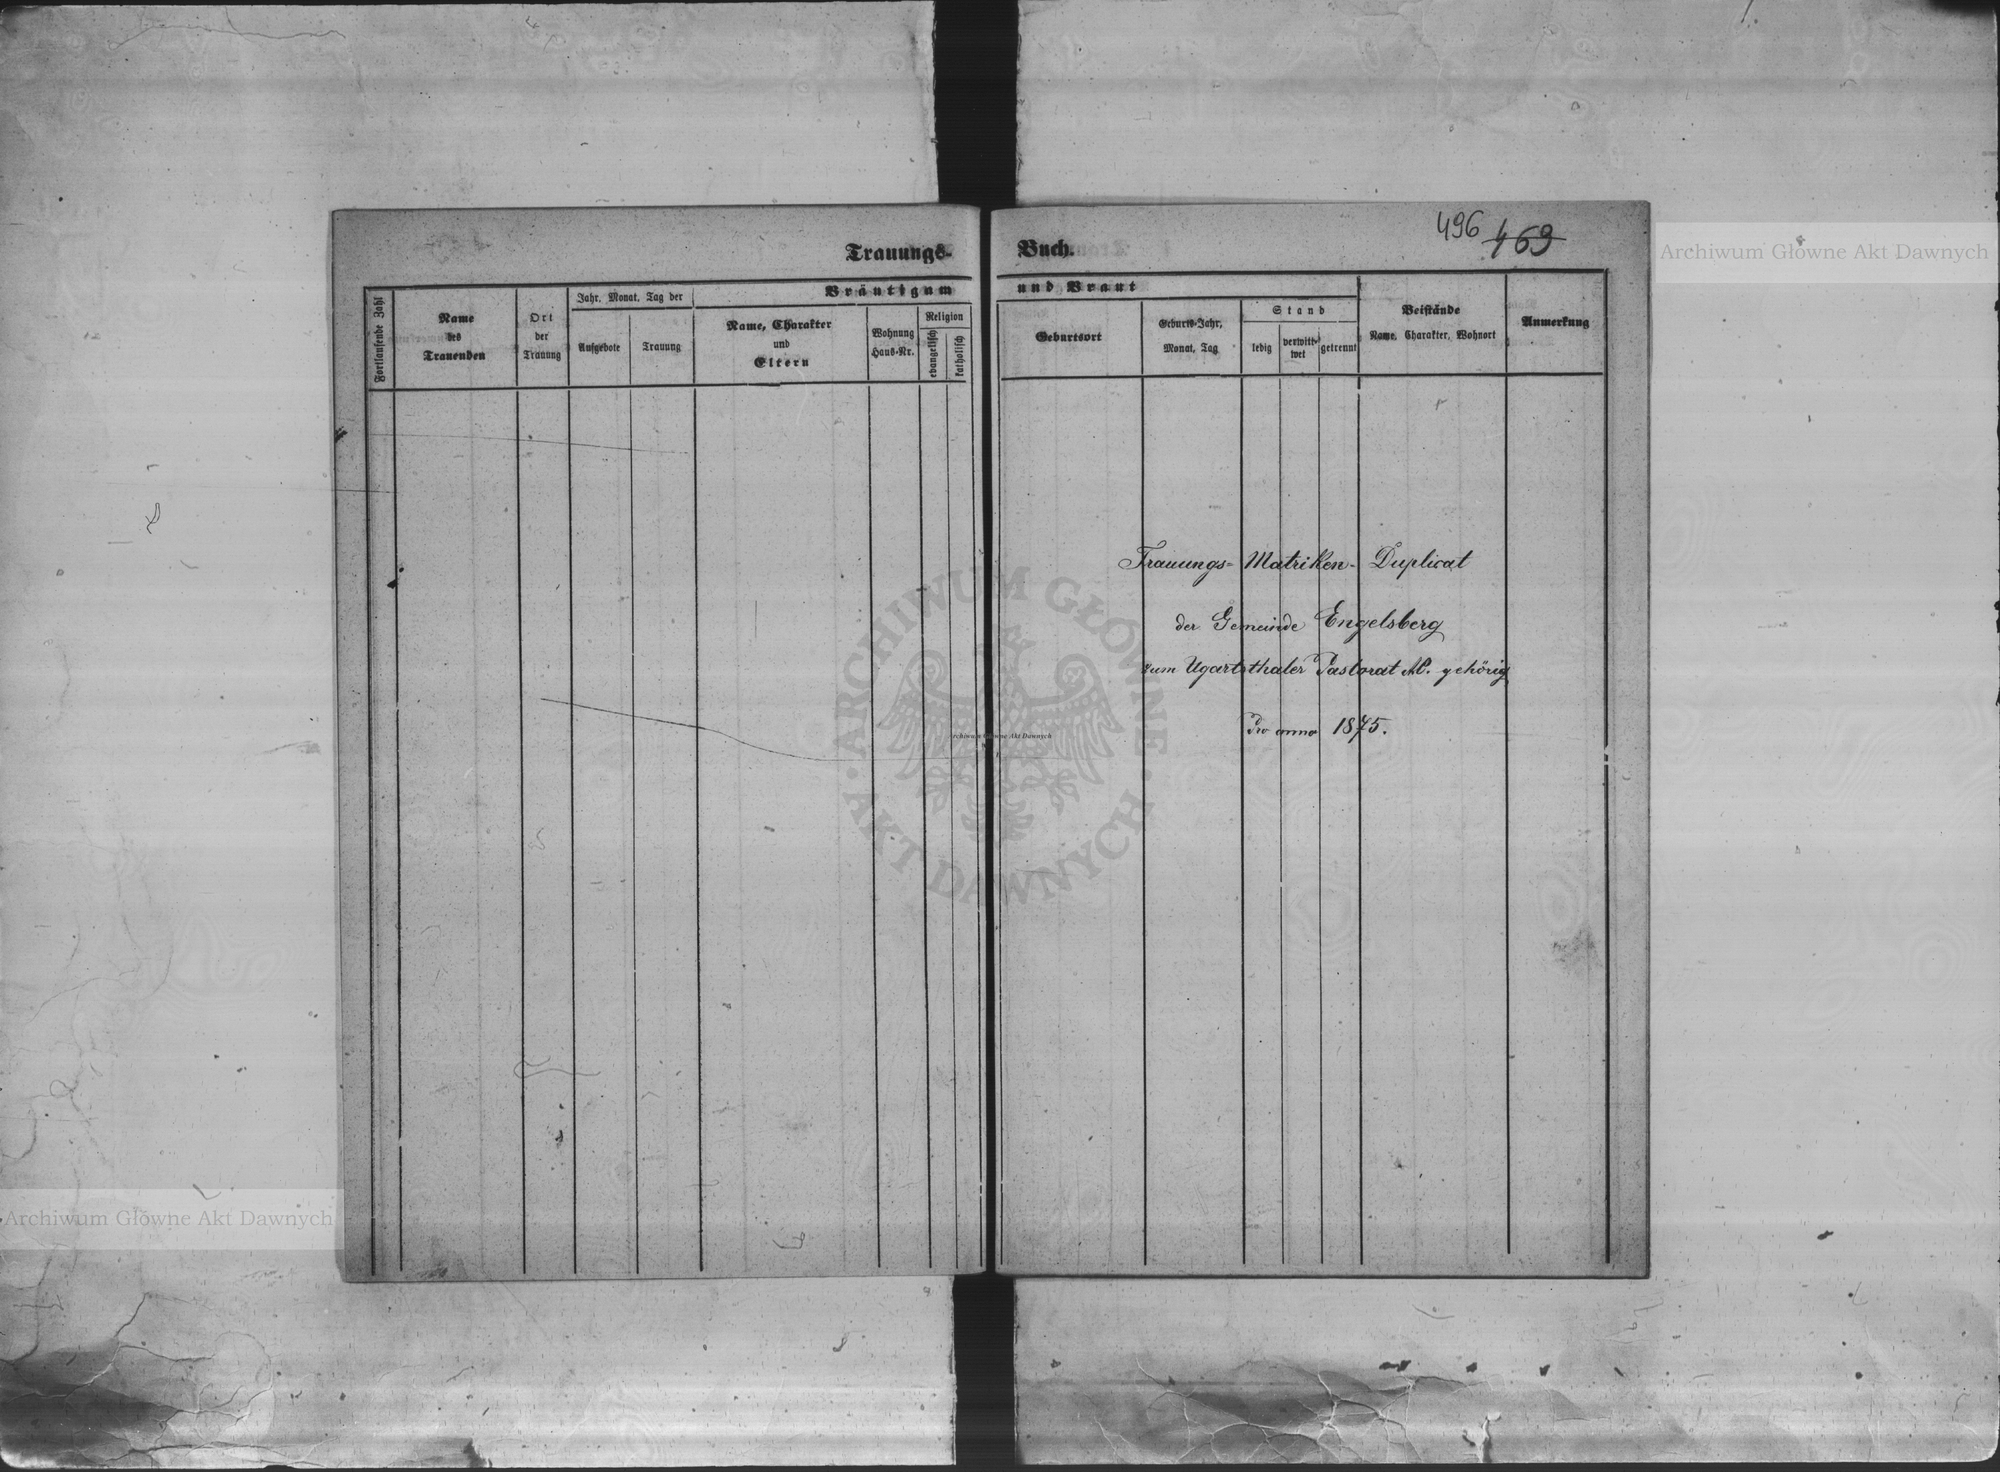 496 469
Trauungs-Buch.
Fortlaufende Zahl
Name
des
Trauenden
Ort
der
Trauung
Jahr, Monat, Tag der
Aufgebote
Trauung
Bräutigam und Braut
Name, Charakter
und
Eltern
Wohnung
Haus-Nr.
Religion
evangelisch
katholisch
Geburtsort
Geburts-Jahr,
Monat, Tag
Stand
ledig
verwitt-
wet
getrennt
Beistände
Name, Charakter, Wohnort
Anmerkung
Trauungs- Matriken- Duplicat
der Gemeinde Engelsberg
zum Ugartsthaler Pastorat gehörig
Pro anno 1875.
Archiwum Główne Akt Dawnych
Archiwum Główne Akt Dawnych
ARCHIWUM GŁÓWNE
AKT DAWNYCH
Archiwum Główne Akt Dawnych